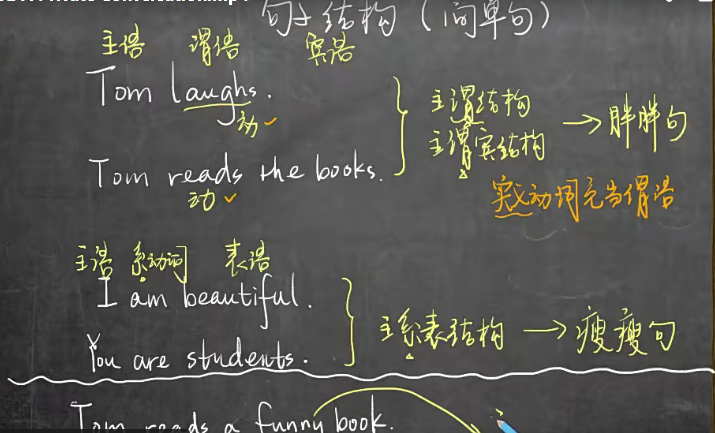 句子结构（简单句）
主语 谓语 宾语
Tom laughs.
动
主谓结构
主谓宾结构 → 胖胖句
Tom reads the books.
动
实义动词充当谓语
主语 系动词 表语
I am beautiful.
You are students.
主系表结构 → 瘦瘦句
Tom reads a funny book.